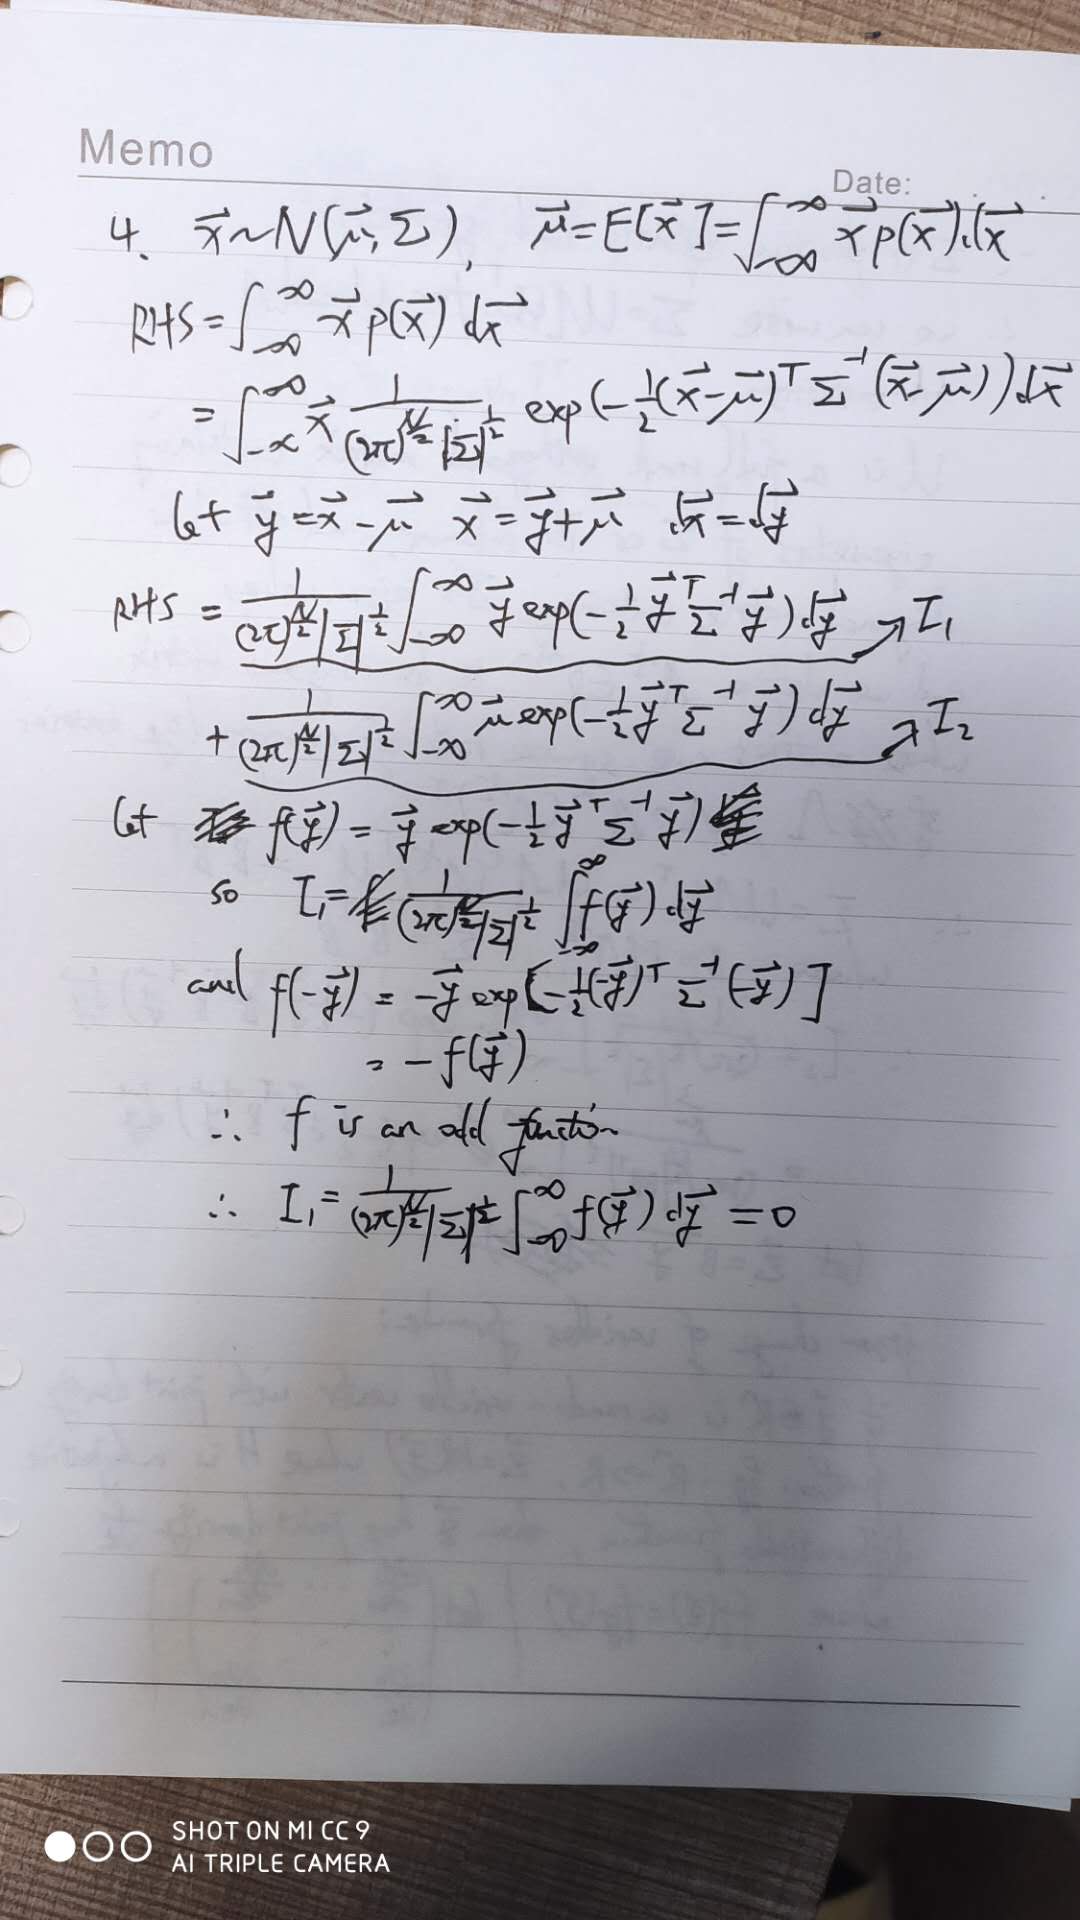 Memo
Date:
4. x⃗~N(μ⃗,Σ), μ⃗=E[x⃗]=∫_{-∞}^{∞} x⃗p(x⃗)dx⃗
RHS=∫_{-∞}^{∞} x⃗p(x⃗)dx⃗
=∫_{-∞}^{∞} x⃗ 1/((2π)^{N/2}|Σ|^{1/2}) exp(-1/2(x⃗-μ⃗)^T Σ^{-1}(x⃗-μ⃗))dx⃗
let y⃗=x⃗-μ⃗ x⃗=y⃗+μ⃗ dx⃗=dy⃗
RHS = 1/((2π)^{N/2}|Σ|^{1/2}) ∫_{-∞}^{∞} y⃗ exp(-1/2 y⃗^T Σ^{-1} y⃗)dy⃗ → I₁
+ 1/((2π)^{N/2}|Σ|^{1/2}) ∫_{-∞}^{∞} μ⃗ exp(-1/2 y⃗^T Σ^{-1} y⃗)dy⃗ → I₂
let f(y⃗) = y⃗ exp(-1/2 y⃗^T Σ^{-1} y⃗)
so I₁= 1/((2π)^{N/2}|Σ|^{1/2}) ∫_{-∞}^{∞} f(y⃗)dy⃗
and f(-y⃗) = -y⃗ exp[-1/2(-y⃗)^T Σ^{-1}(-y⃗)]
= -f(y⃗)
∴ f is an odd function
∴ I₁= 1/((2π)^{N/2}|Σ|^{1/2}) ∫_{-∞}^{∞} f(y⃗)dy⃗ =0
SHOT ON MI CC 9
AI TRIPLE CAMERA